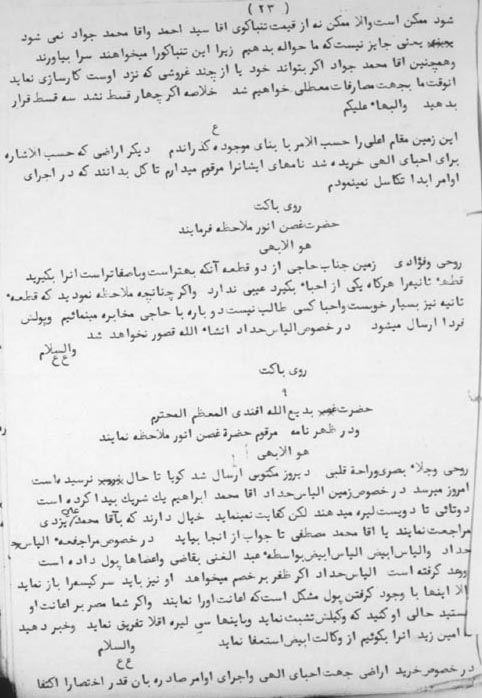 ( ٢٣ )
شود ممکن است والا ممکن نه از قیمت تنباکوی اقا سید احمد واقا محمد جواد نمی شود
یعنی جایز نیست که ما حواله بدهیم زیرا این تنباکورا میخواهند سرا بیاورند
وهمچنین اقا محمد جواد اکر بتواند خود یا از چند غروشی که نزد اوست کارسازی نماید
انوقت ما بجهت مصارفات معطلی خواهیم شد خلاصه اکر چهار قسط نشد سه قسط قرار
بدهید والبهاء علیکم
ع
این زمین مقام اعلی را حسب الامر با بنای موجوده گذراندم دیکر اراضی که حسب الاشاره
برای احبای الهی خریده شد نامهای ایشانرا مرقوم میدارم تا کل بدانند که در اجرای
اوامر ابدا تکاسل نمینمودم
روی پاکت
حضرت غصن انور ملاحظه فرمایند
هو الابهی
روحی وفؤادی زمین جناب حاجی از دو قطعه آنکه بهتراست وباصفاتراست انرا بکیرید
قطعهٔ ثانیه را هرکاه یکی از احباء بکیرد عیبی ندارد واکر چنانچه ملاحظه نمودید که قطعهٔ
ثانیه نیز بسیار خوبست واحبا کسی طالب نیست دوباره با حاجی مخابره مینمائیم وپولش
فردا ارسال میشود درخصوص الیاس حداد انشاء الله قصور نخواهد شد
والسلام
ع ع
روی پاکت
٩
حضرت بدیع الله افندی المعظم المحترم
ودر ظهر نامه مرقوم حضرة غصن انور ملاحظه نمایند
هو الابهی
روحی وجلاء بصری وراحة قلبی دیروز مکتوبی ارسال شد کویا تا حال نرسیده است
امروز میرسد درخصوص زمین الیاس حداد اقا محمد ابراهیم یک شریک پیدا کرده است
دوتائی تا دویست لیره میدهند لکن کفایت نمینماید خیال دارند که بآقا محمد علی یزدی
مراجعت نمایند یا اقا محمد مصطفی تا جواب از انجا بیاید درخصوص مرافعهٔ الیاس
حداد والیاس ابیض الیاس ابیض بواسطهٔ عبد الغنی بقاضی واعضاها پول داده است
ووعد کرفته است الیاس حداد اکر ظفر بر خصم میخواهد او نیز باید سرکیسه را باز نماید
الا اینها با وجود کرفتن پول مشکل است که اعانت اورا نمایند واکر شما مصر بر اعانت او
هستید حالی او کنید که وکیلش تشبث نماید وباینها سی لیره اقلا تفریق نماید وخبر دهید
امین زید انرا بکوئیم از وکالت ابیض استعفا نماید والسلام
ع ع
درخصوص خرید اراضی جهت احبای الهی واجرای اوامر صادره بان قدر اختصارا اکتفا